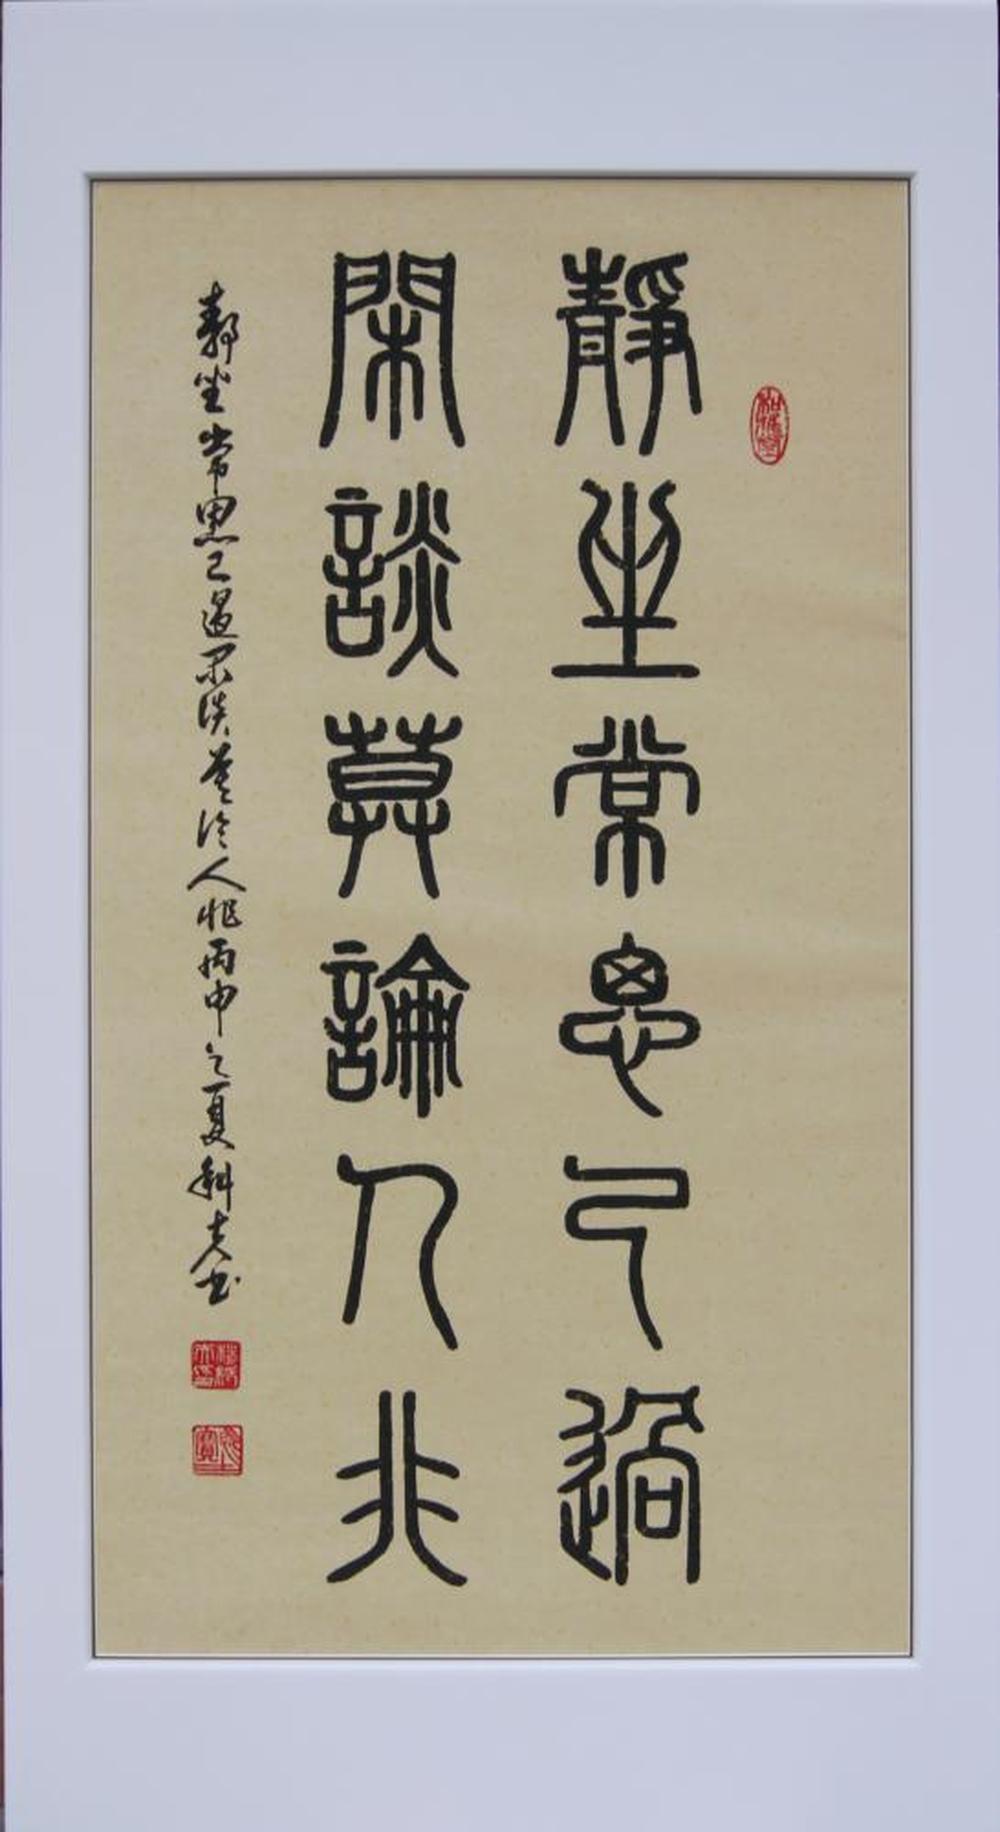 靜坐常思己過
閑談莫論人非
靜坐常思己過閑談莫論人非丙申之夏科夫书